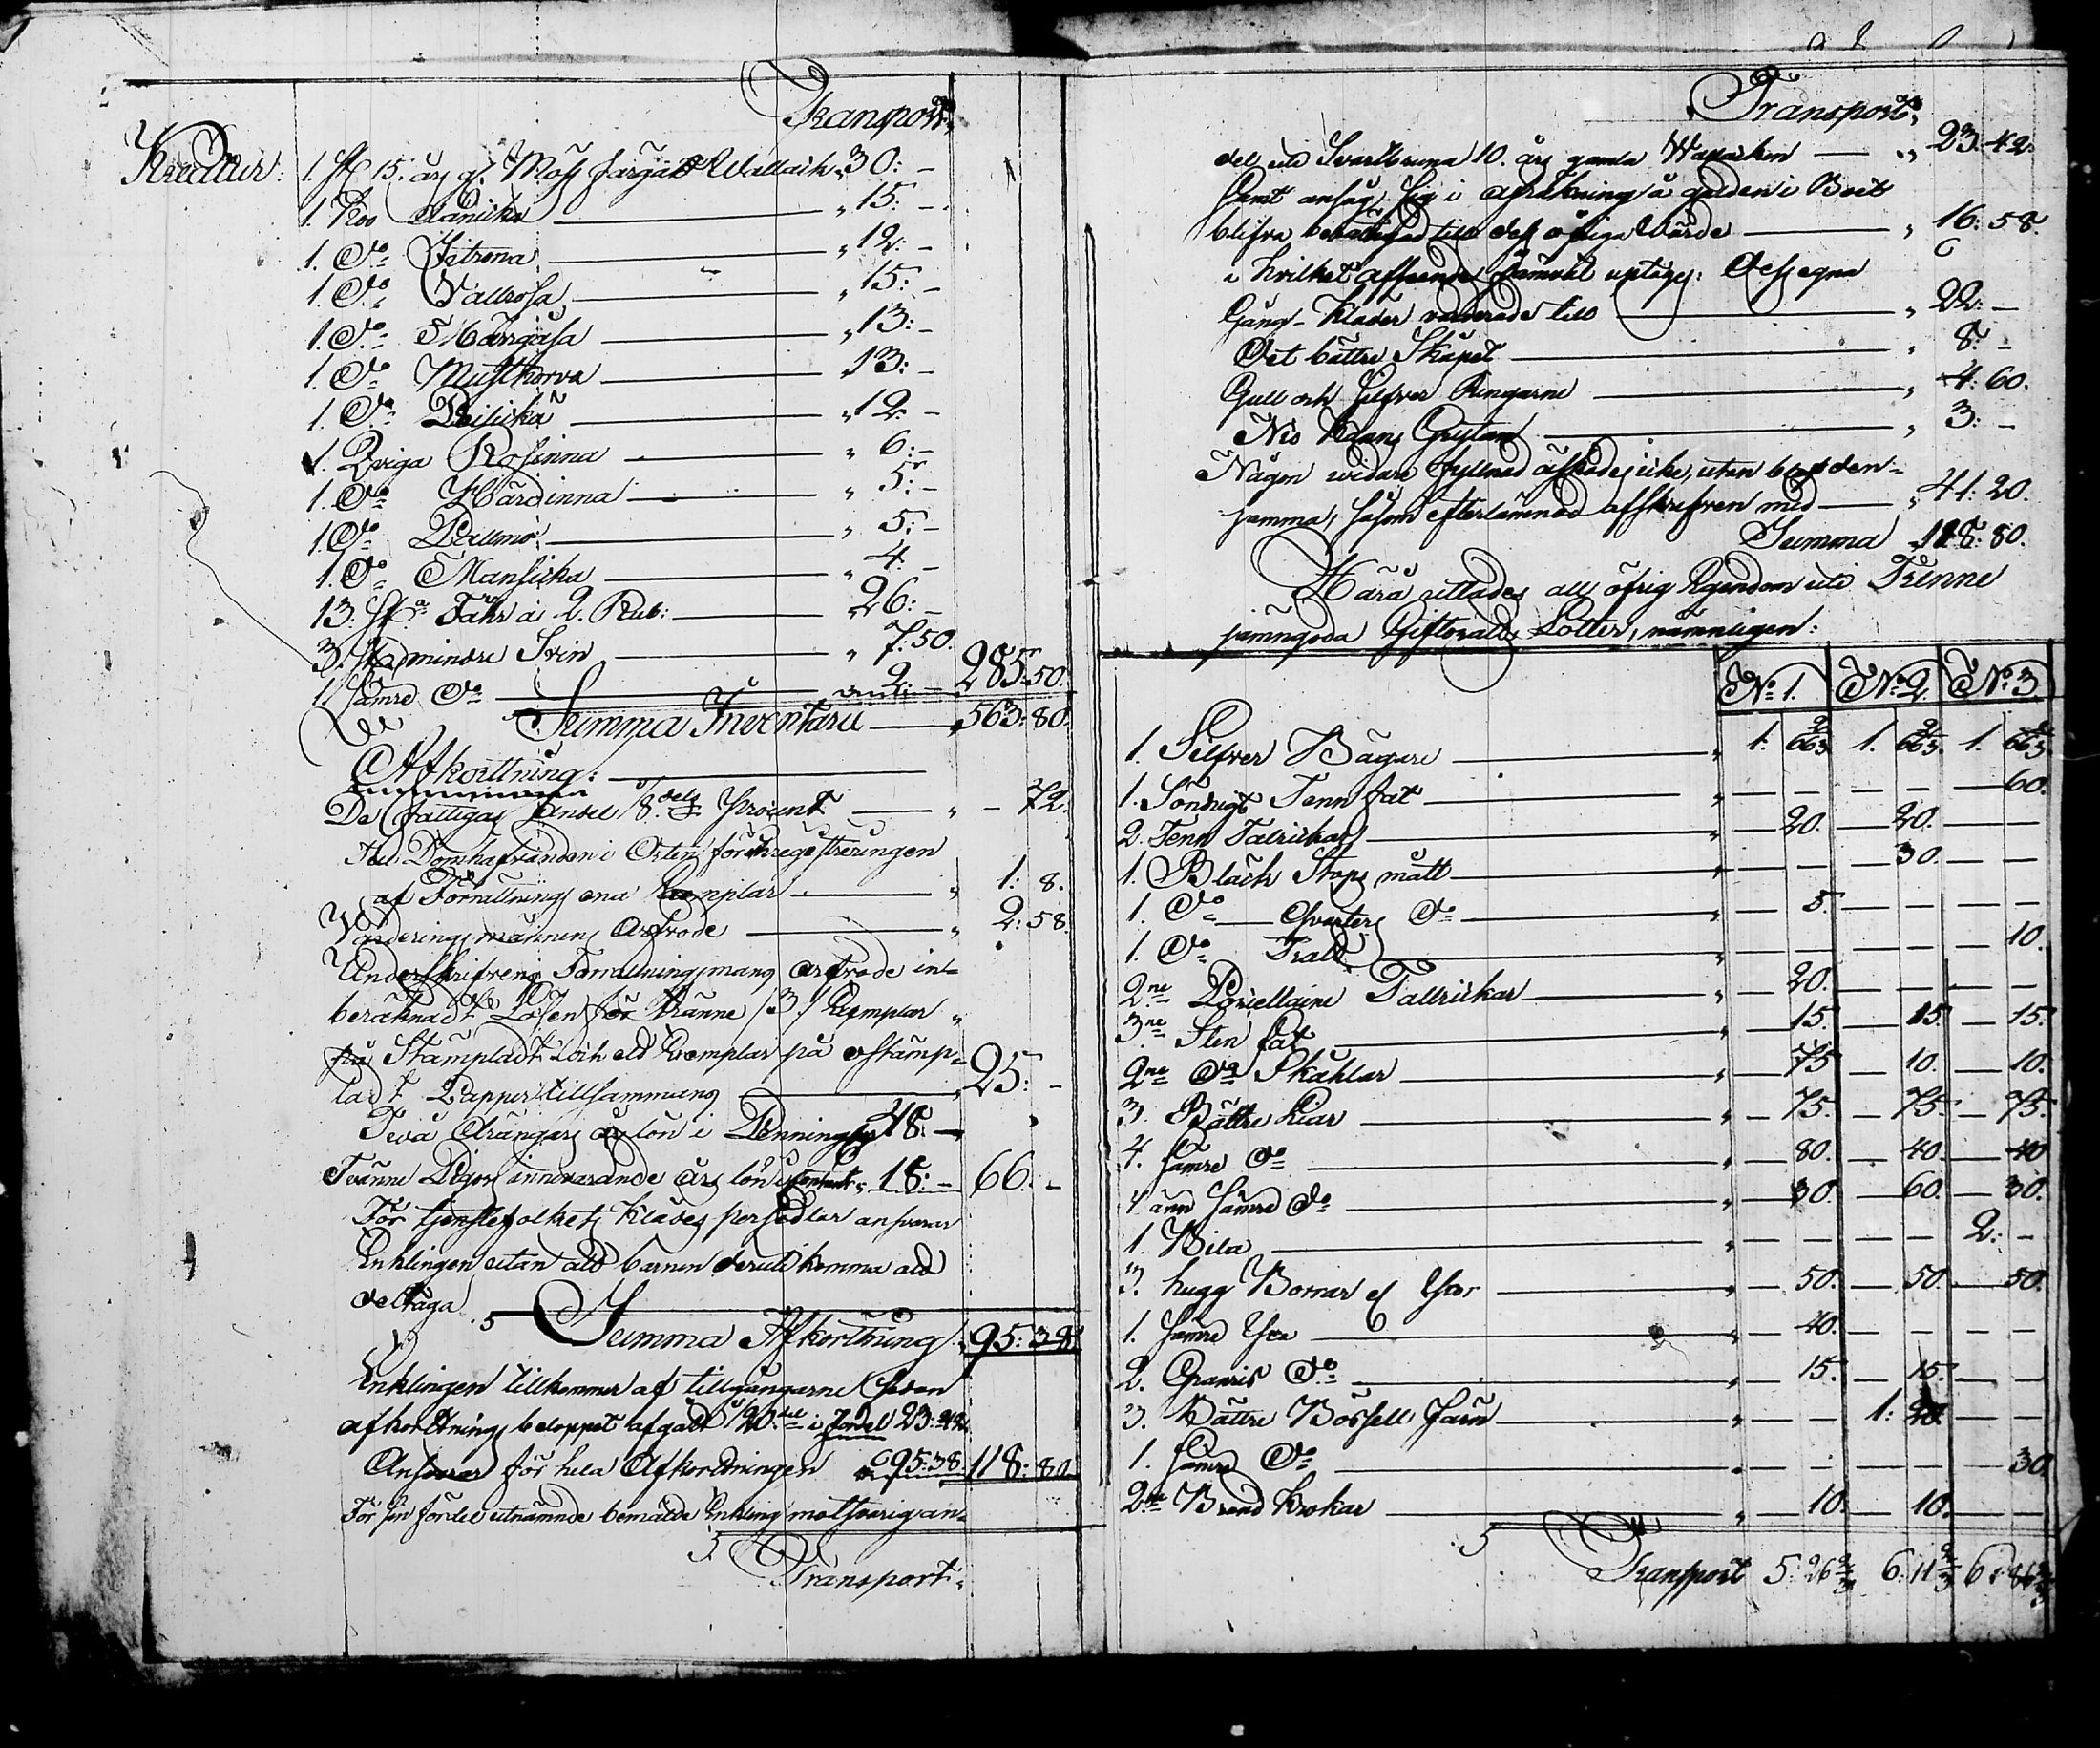 Transport:
Kreatur: 1. St 15. års g. Moss färgad Wallack „ 30: –
1. Koo Länicka „ 15: –
1. Do Sitrona „ 12: –
1. Do Vallrosa „ 15: –
1. Do Mangåsa „ 13: –
1. Do Mustkorva „ 13: –
1. Do Leilicka „ 12: –
1. Qviga Rosinna „ 6: –
1. Do Härdinna „ 5: –
1. Do Pallmo „ 5: –
1. Do Mansicka „ 4: –
13. St Fåhr à 2. Rub: „ 26: –
3. St mindre Svin „ 7: 50.
1. sämre Do „ 2: – 285: 50.
Summa Inventarii „ 563: 80.
Afkorttning:
De fattigas andel 1/8 dels Procent „ – 72.
Till Domhafvanden i Orten för inregistreringen
af Förrättnings ena Exemplar „ 1: 8.
Värderingsmännens Arfvode „ 2: 58.
Underskrifvens Förrättningsmans arfvode in-
beräknadt Lösen för thränne /3/ Exemplar „
på Stämpladt och ett Exemplar på ostämp-
ladt Papper tillsammans „ 25: –
Två Drängars års lön i Penningar 48: –
Tvänne Pigors innevarande års lön contant „ 18: – 66: –
För tjenstefolkets Klädes persedlar ansvarar
Enklingen utan att barnen deruti komma att
deltaga.
Summa Afkorttning „ 95: 38.
Enklingen tillkommer af tillgångarne sedan
afkorttnings beloppet afgått 1/20 del i fördel 23: 42.
Ansvarar för hela Afkorttningen 95: 38. 118: 80.
För sin fördel utnämnde bemälde Enkling motsvarig an-
Transport:

Transport:
del uti Svartbruna 10. års gamla Wallacken „ 23: 42.
Samt ansåg sig i afräkning å gälden i Boet
blifva berättigad till dess öfriga Värde „ 16: 58.
i hvilket afseende jämväl uptages: Dess egna
Gång-Kläder värderade till „ 22: –
Det bättre Skåpet „ 8: –
Gull och Silfver Ringarne „ 4: 60.
Nio Kanns Grytan „ 3: –
Någon vidare fyllnad äskades icke, utan blef den-
samma, såsom efterlämnad afskrifven med „ 41: 20.
Summa 118: 80.
Härå utlades all öfrig Egendom uti Trenne
jämngoda Giftoratts Lotter, nämnligen:
No 1. No 2. No 3.
1. Silfver Bägare „ 1: 66 2/3 1. 66 2/3 1. 66 2/3
1. Söndrigt Tenn fat „ – – – – – 60.
2. Tenn Talrickar „ – 20. – 20. – –
1. Bläck Stops mått „ – – – 30. – –
1. Do Qvarters Do „ – 5. – – – –
1. Do Tratt „ – – – – – 10.
2ne Porcellaine Tallrickar „ – 20. – – – –
3ne Sten fat „ – 15. – 15. – 15.
2ne Do Skåhlar „ – 75 – 10. – 10.
3. Bättre Liar „ – 75. – 75. – 75.
4. sämre Do „ – 80. – 40. – 40
4 änn sämre Do „ – 30. – 60. – 30.
1. Bila „ – – – – 2: –
3. hugg Borrar „ – 50. – 50. – 50.
1. sämre Yxa „ – 40. – – – –
2. Granris Do „ – 15. – 15. – –
3. Bättre Bössell Järn „ – – 1: 20 – –
1. sämre Do „ – – – – – 30.
2ne Brand Krokar „ – 10. – 10. – –
Transport 5: 26 2/3 6: 11 2/3 6: 86 2/3